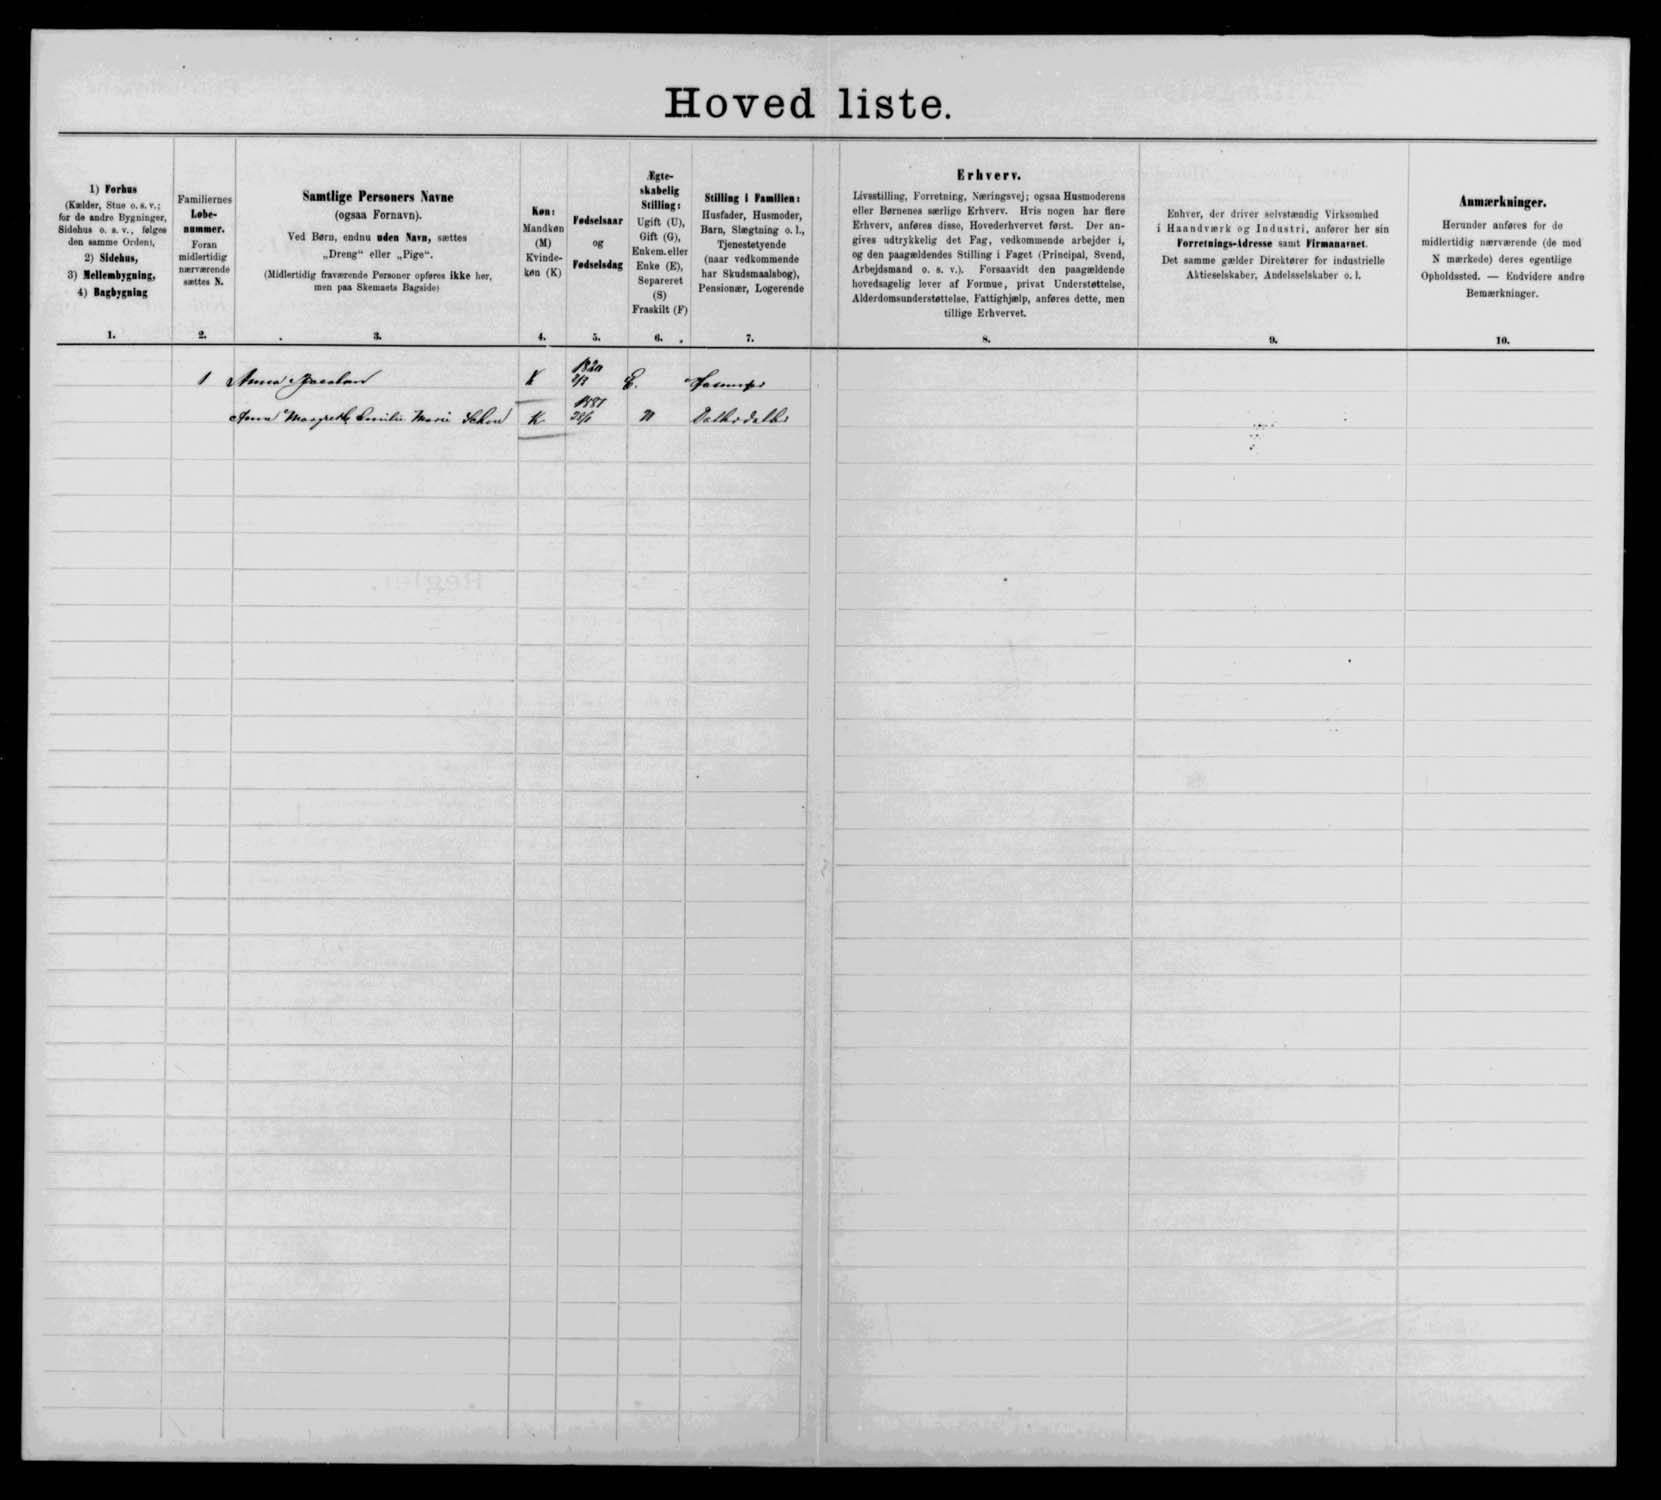 Hovedliste.
1) Forhus
(Kælder, Stue o. s. v.;
for de andre Bygninger,
Sidehus o. s. v., følges
den samme Orden),
2) Sidehus,
3) Mellembygning,
4) Bagbygning
1.
Familiernes
Løbe-
nummer.
Foran
midlertidig
nærværende
sættes N.
2.
Samtlige Personers Navne
(ogsaa Fornavn).
Ved Børn, endnu uden Navn, sættes
„Dreng“ eller „Pige“.
(Midlertidig fraværende Personer opføres ikke her,
men paa Skemaets Bagside)
3.
Køn:
Mandkøn
(M)
Kvinde-
køn (K)
4.
Fødselsaar
og
Fødselsdag
5.
Ægte-
skabelig
Stilling:
Ugift (U),
Gift (G),
Enkem. eller
Enke (E),
Separeret
(S)
Fraskilt (F)
6.
Stilling i Familien:
Husfader, Husmoder,
Barn, Slægtning o. l.,
Tjenestetyende
(naar vedkommende
har Skudsmaalsbog),
Pensionær, Logerende
7.
Erhverv.
Livsstilling, Forretning, Næringsvej; ogsaa Husmoderens
eller Børnenes særlige Erhverv. Hvis nogen har flere
Erhverv, anføres disse, Hovederhvervet først. Der an-
gives udtrykkelig det Fag, vedkommende arbejder i,
og den paagældendes Stilling i Faget (Principal, Svend,
Arbejdsmand o. s. v.). Forsaavidt den paagældende
hovedsagelig lever af Formue, privat Understøttelse,
Alderdomsunderstøttelse, Fattighjælp, anføres dette, men
tillige Erhvervet.
8.
Enhver, der driver selvstændig Virksomhed
i Haandværk og Industri, anfører her sin
Forretnings-Adresse samt Firmanavnet.
Det samme gælder Direktører for industrielle
Aktieselskaber, Andelsselskaber o. l.
9.
Anmærkninger.
Herunder anføres for de
midlertidig nærværende (de med
N mærkede) deres egentlige
Opholdssted. — Endvidere andre
Bemærkninger.
10.
1 Anna K E.
Anna Margrethe Emilie Marie Schou K 1881